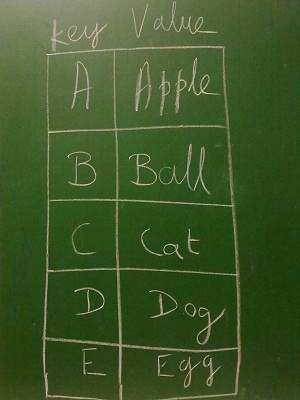 key Value
A Apple
B Ball
C Cat
D Dog
E Egg